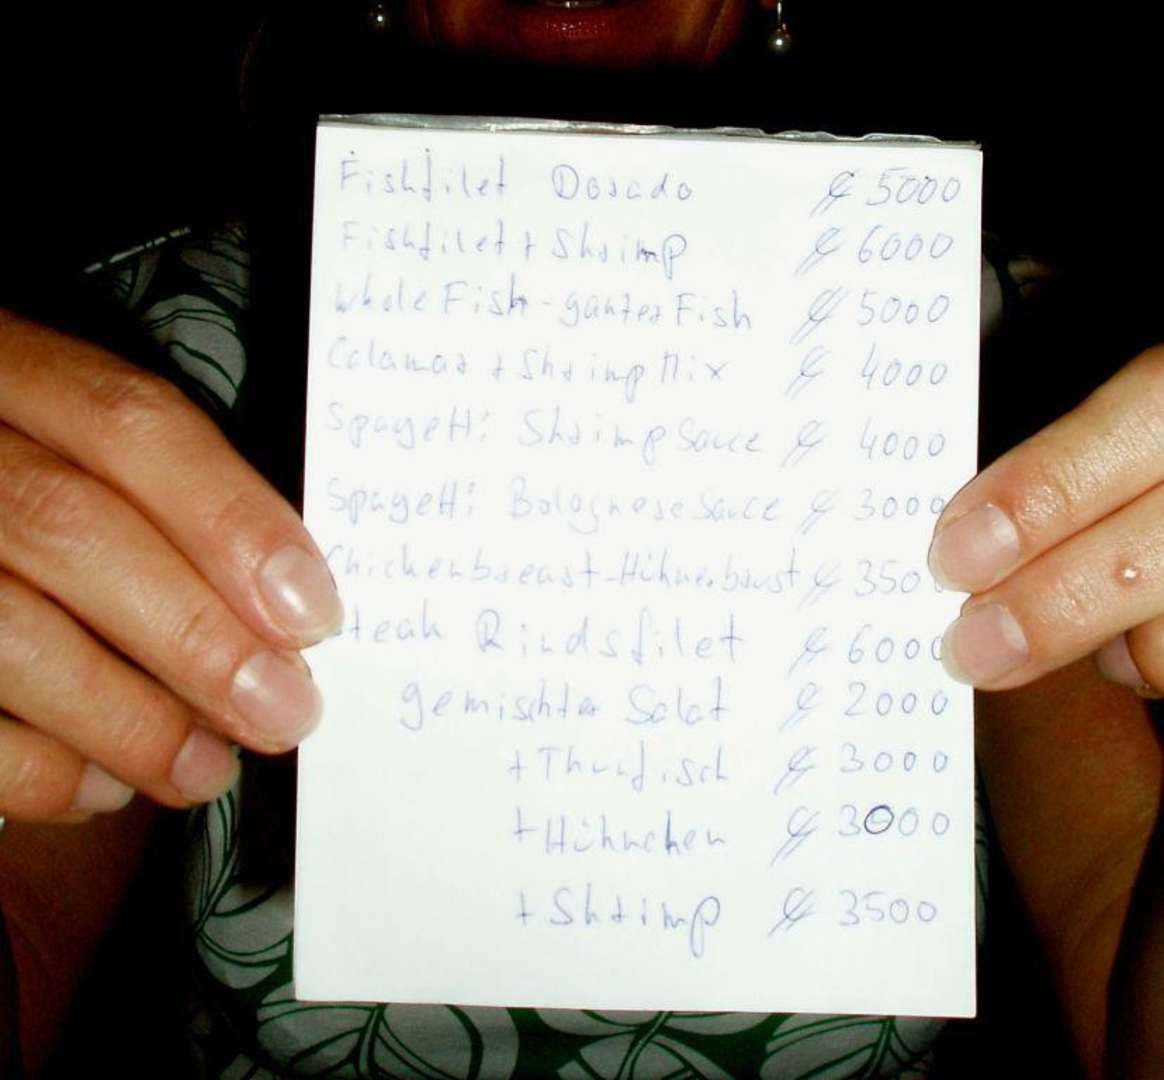 Fishfilet Dorado ₡ 5000
Fishfilet + Shrimp ₡ 6000
whole Fish - ganzer Fish ₡ 5000
Calamar + Shrimp Mix ₡ 4000
Spagetti Shrimp Sauce ₡ 4000
Spagetti Bolognese Sauce ₡ 3000
Chickenbreast - Hühnerbrust ₡ 3500
Steak Rindsfilet ₡ 6000
gemischter Salat ₡ 2000
+ Thunfisch ₡ 3000
+ Hühnchen ₡ 3000
+ Shrimp ₡ 3500